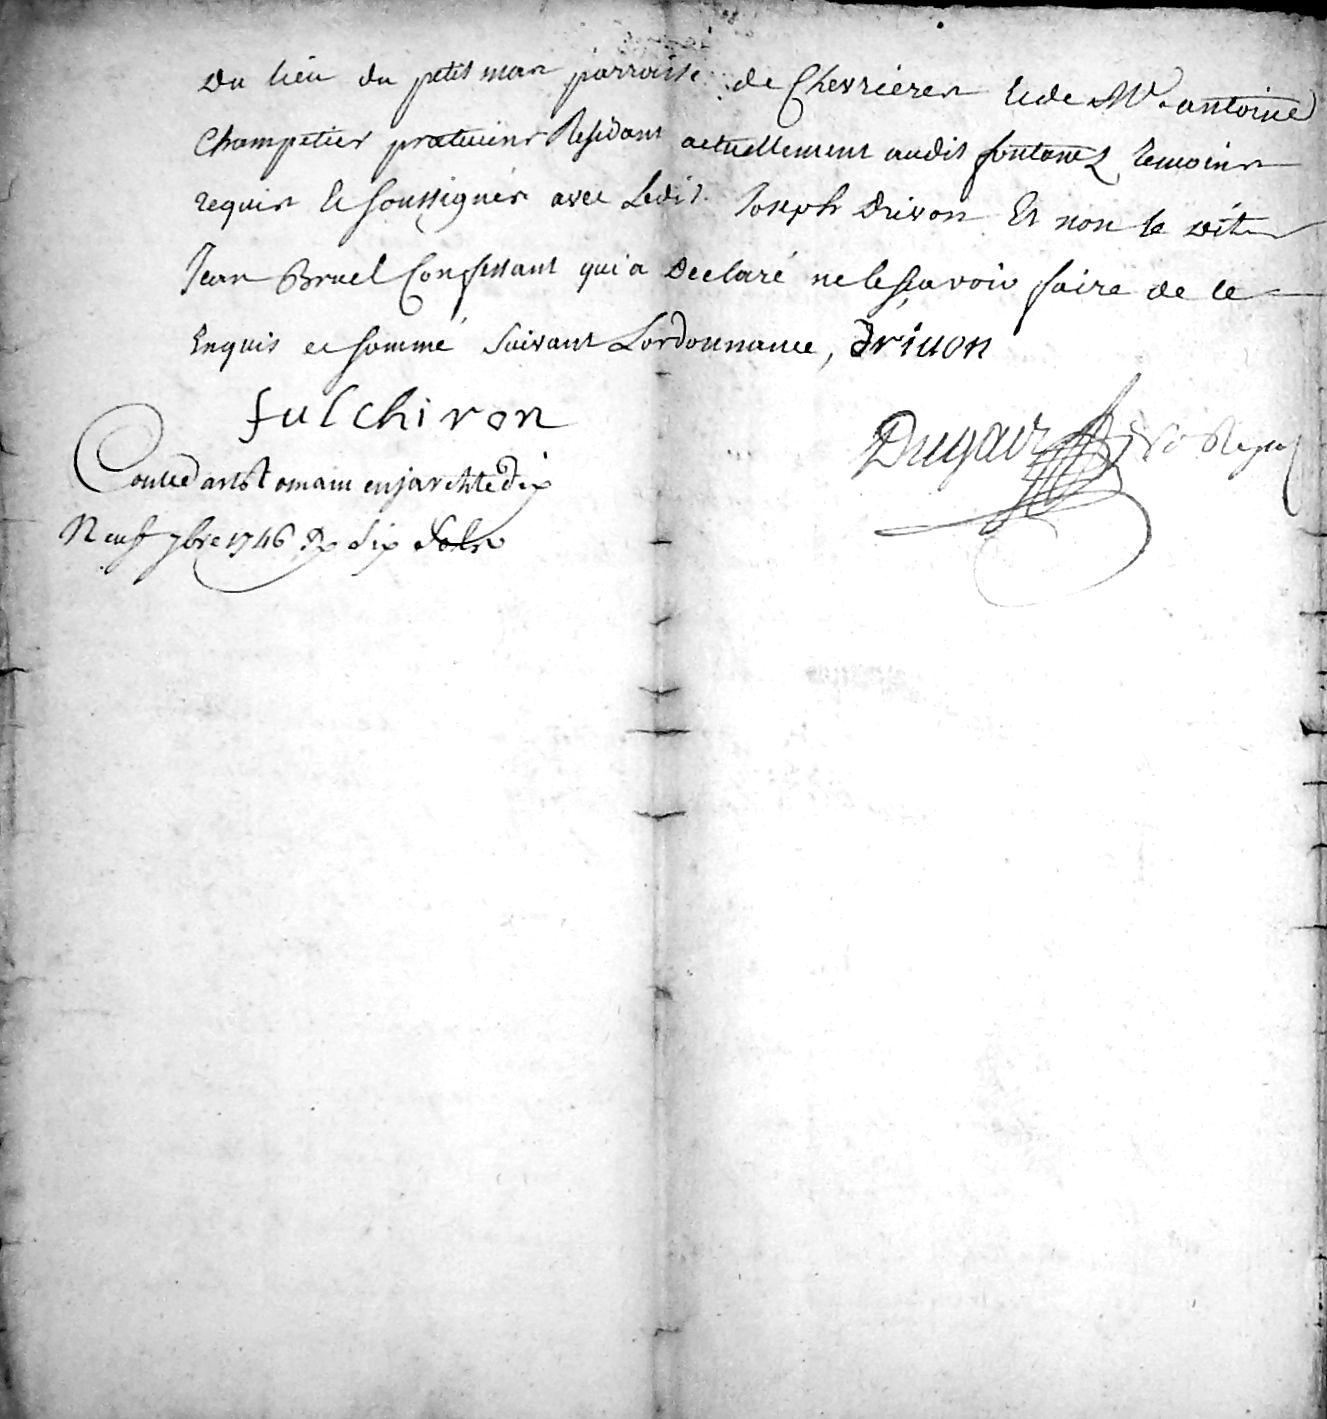 du lieu du petit mon parroisse de Chevrieres et de Mr. antoine
Champetier praticiens Residant actuellement audit fontanes temoins
requis et soussignés avec Ledit Joseph Drivon Et non le dit
Jean Bruel Confessant qui a Declaré ne le sçavoir faire de ce
Enquis et sommé suivant Lordonnance, driuon
fulchiron
Dugair
Contlé a st Romain en jarest le dix
Neuf 7bre 1746 R dix sols